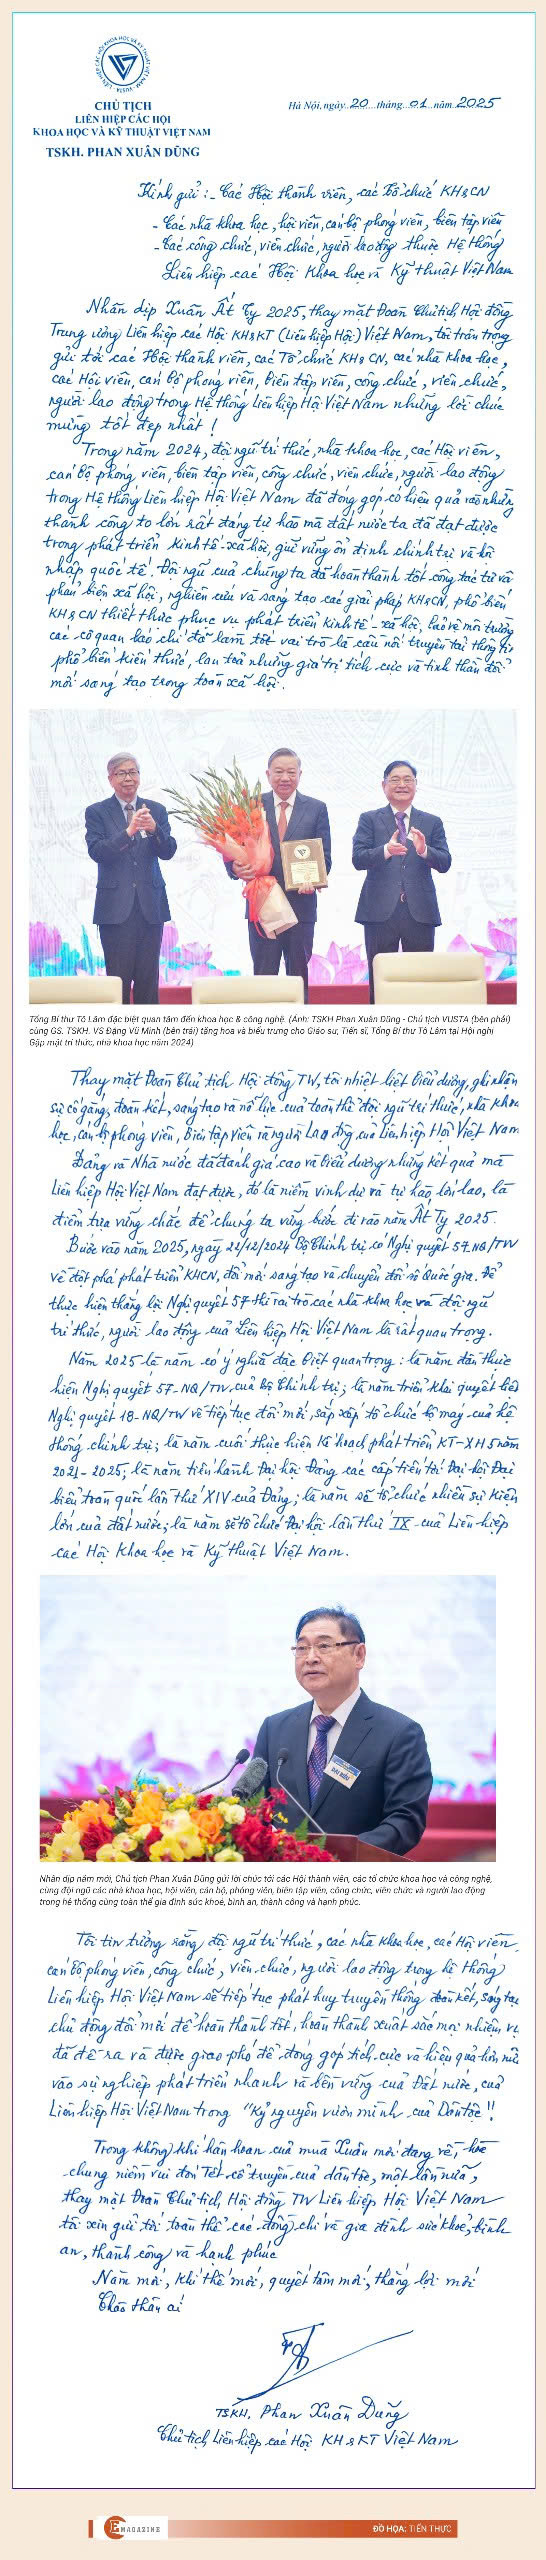 LIÊN HIỆP CÁC HỘI KHOA HỌC VÀ KỸ THUẬT VIỆT NAM - VUSTA
CHỦ TỊCH
LIÊN HIỆP CÁC HỘI
KHOA HỌC VÀ KỸ THUẬT VIỆT NAM
TSKH. PHAN XUÂN DŨNG
Hà Nội, ngày 20 tháng 01 năm 2025
Kính gửi: - Các Hội thành viên, các Tổ chức KH&CN
- Các nhà khoa học, hội viên, cán bộ phóng viên, biên tập viên
- Các công chức, viên chức, người lao động thuộc Hệ thống
Liên hiệp các Hội Khoa học và Kỹ thuật Việt Nam
Nhân dịp Xuân Ất Tỵ 2025, thay mặt Đoàn Chủ tịch, Hội đồng
Trung ương Liên hiệp các Hội KH&KT (Liên hiệp Hội) Việt Nam, tôi trân trọng
gửi tới các Hội thành viên, các Tổ chức KH&CN, các nhà khoa học,
các Hội viên, cán bộ phóng viên, biên tập viên, công chức, viên chức,
người lao động trong Hệ thống Liên hiệp Hội Việt Nam những lời chúc
mừng tốt đẹp nhất!
Trong năm 2024, đội ngũ trí thức, nhà khoa học, các Hội viên,
cán bộ phóng viên, biên tập viên, công chức, viên chức, người lao động
trong Hệ thống Liên hiệp Hội Việt Nam đã đóng góp có hiệu quả vào những
thành công to lớn rất đáng tự hào mà đất nước ta đã đạt được
trong phát triển kinh tế - xã hội, giữ vững ổn định chính trị và hội
nhập quốc tế. Đội ngũ của chúng ta đã hoàn thành tốt công tác tư vấn
phản biện xã hội, nghiên cứu và sáng tạo các giải pháp KH&CN, phổ biến
KH&CN thiết thực phục vụ phát triển kinh tế - xã hội, bảo vệ môi trường,
các cơ quan báo chí đã làm tốt vai trò là cầu nối truyền tải thông tin
phổ biến kiến thức, lan toả những giá trị tích cực và tinh thần đổi
mới sáng tạo trong toàn xã hội.
Tổng Bí thư Tô Lâm đặc biệt quan tâm đến khoa học & công nghệ. (Ảnh: TSKH Phan Xuân Dũng - Chủ tịch VUSTA (bên phải)
cùng GS. TSKH. VS Đặng Vũ Minh (bên trái) tặng hoa và biểu trưng cho Giáo sư, Tiến sĩ, Tổng Bí thư Tô Lâm tại Hội nghị
Gặp mặt trí thức, nhà khoa học năm 2024)
Thay mặt Đoàn Chủ tịch Hội đồng TW, tôi nhiệt liệt biểu dương, ghi nhận
sự cố gắng, đoàn kết, sáng tạo và nỗ lực của toàn thể đội ngũ trí thức, nhà khoa
học, cán bộ phóng viên, biên tập viên và người lao động của Liên hiệp Hội Việt Nam
Đảng và Nhà nước đã đánh giá cao và biểu dương những kết quả mà
Liên hiệp Hội Việt Nam đạt được, đó là niềm vinh dự và tự hào lớn lao, là
điểm tựa vững chắc để chúng ta vững bước đi vào năm Ất Tỵ 2025.
Bước vào năm 2025, ngày 22/12/2024 Bộ Chính trị có Nghị quyết 57-NQ/TW
về đột phá phát triển KHCN, đổi mới sáng tạo và chuyển đổi số Quốc gia. Để
thực hiện thắng lợi Nghị quyết 57 thì vai trò các nhà khoa học và đội ngũ
trí thức, người lao động của Liên hiệp Hội Việt Nam là rất quan trọng.
Năm 2025 là năm có ý nghĩa đặc biệt quan trọng: là năm đầu thực
hiện Nghị quyết 57-NQ/TW của Bộ Chính trị; là năm triển khai quyết liệt
Nghị quyết 18-NQ/TW về tiếp tục đổi mới, sắp xếp tổ chức bộ máy của hệ
thống chính trị; là năm cuối thực hiện Kế hoạch phát triển KT-XH 5 năm
2021-2025; là năm tiến hành Đại hội Đảng các cấp tiến tới Đại hội Đại
biểu toàn quốc lần thứ XIV của Đảng; là năm sẽ tổ chức nhiều sự kiện
lớn của đất nước; là năm sẽ tổ chức Đại hội lần thứ IX của Liên hiệp
các Hội Khoa học và Kỹ thuật Việt Nam.
ĐẠI BIỂU
Nhân dịp năm mới, Chủ tịch Phan Xuân Dũng gửi lời chúc tới các Hội thành viên, các tổ chức khoa học và công nghệ,
cùng đội ngũ các nhà khoa học, hội viên, cán bộ, phóng viên, biên tập viên, công chức, viên chức và người lao động
trong hệ thống cùng toàn thể gia đình sức khoẻ, bình an, thành công và hạnh phúc.
Tôi tin tưởng rằng đội ngũ trí thức, các nhà khoa học, các Hội viên,
cán bộ phóng viên, công chức, viên chức, người lao động trong hệ thống
Liên hiệp Hội Việt Nam sẽ tiếp tục phát huy truyền thống đoàn kết, sáng tạo
chủ động đổi mới để hoàn thành tốt, hoàn thành xuất sắc mọi nhiệm vụ
đã đề ra và được giao phó để đóng góp tích cực và hiệu quả hơn nữa
vào sự nghiệp phát triển nhanh và bền vững của Đất nước, của
Liên hiệp Hội Việt Nam trong "Kỷ nguyên vươn mình của Dân tộc"!
Trong không khí hân hoan của mùa Xuân mới đang về, hòa
chung niềm vui đón Tết cổ truyền của dân tộc, một lần nữa,
thay mặt Đoàn Chủ tịch, Hội đồng TW Liên hiệp Hội Việt Nam
tôi xin gửi tới toàn thể các đồng chí và gia đình sức khoẻ, bình
an, thành công và hạnh phúc
Năm mới, khí thế mới, quyết tâm mới, thắng lợi mới
Chào thân ái
TSKH. Phan Xuân Dũng
Chủ tịch Liên hiệp các Hội KH&KT Việt Nam
E MAGAZINE
ĐỒ HỌA: TIẾN THỰC